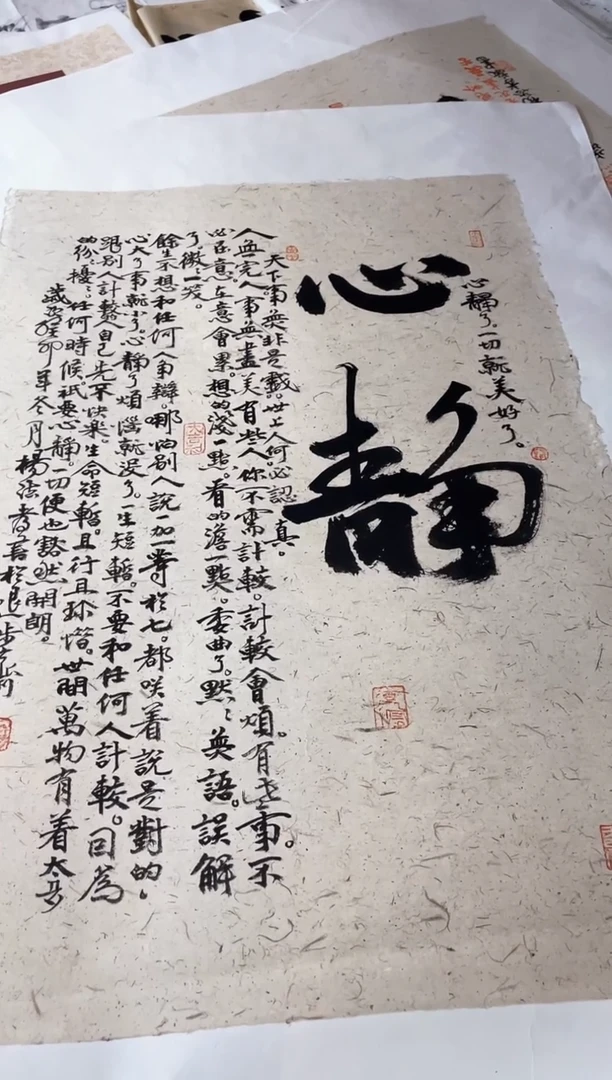 心静了。一切就美好了。
心静
天下事無非是戲。世上人何必認真。
人無完人事無盡美有些人你不需計較。計較會煩。有些事。不
必在意。在意會累。想的淺一點。看的澹一點。委曲了。默々無語。誤解
了。微々一笑。
餘生不想和任何人爭辯。哪怕別人說一加一等於七。都咲着說是對的。
心大了事就小了。心靜了煩惱就没了。一生短暫。不要和任何人計較。因為
跟別人計較人自己先不快樂。生命短暫。且行且珍惜。世間萬物有着太多
的纷擾。任何時候祇要心靜。一切便也豁然開朗。
歲次癸卯年冬月楊